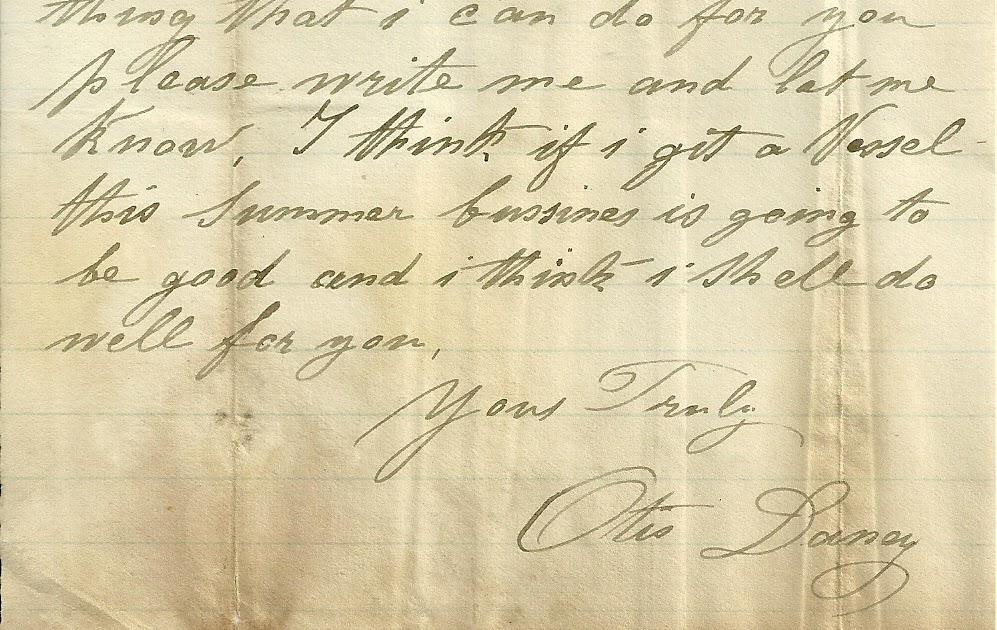 thing that i can do for you
please write me and lat me
Know, I think if i git a Vessel
this Summer bussines is going to
be good and i think i shell do
well for you,
Yous Truly
Otis